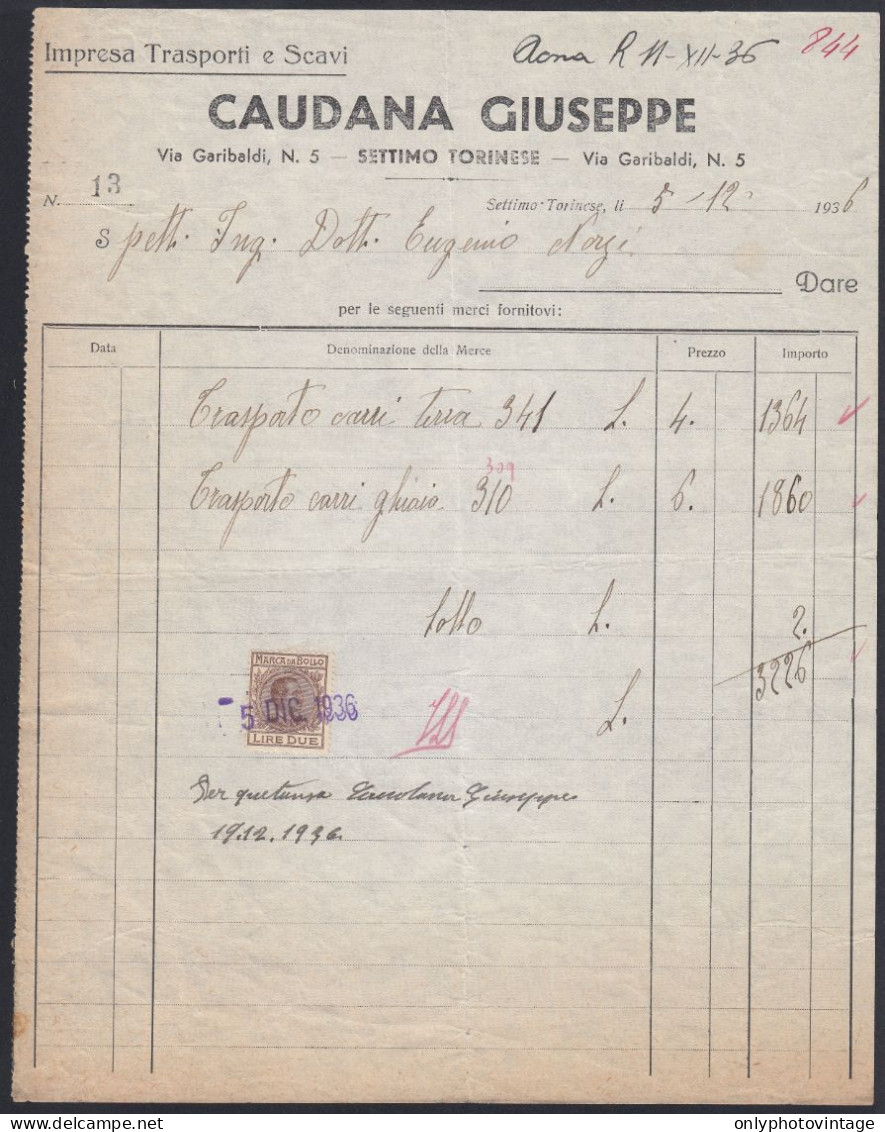 Impresa Trasporti e Scavi
R 11-XII-36 844
CAUDANA GIUSEPPE
Via Garibaldi, N. 5 — SETTIMO TORINESE — Via Garibaldi, N. 5
N. 13
Settimo Torinese, li 5-12- 1936
Spett. Ing. Dott. Eugenio Norzi
Dare
per le seguenti merci fornitovi:
Data Denominazione della Merce Prezzo Importo
Trasporto carri terra 341 L. 4. 1364
309
Trasporto carri ghiaia 310 L. 6. 1860
bollo L. 2.
L. 3226
MARCA DA BOLLO
5 DIC. 1936
LIRE DUE
Per quetansa Caudana Giuseppe
19.12.1936
onlyphotovintage.com